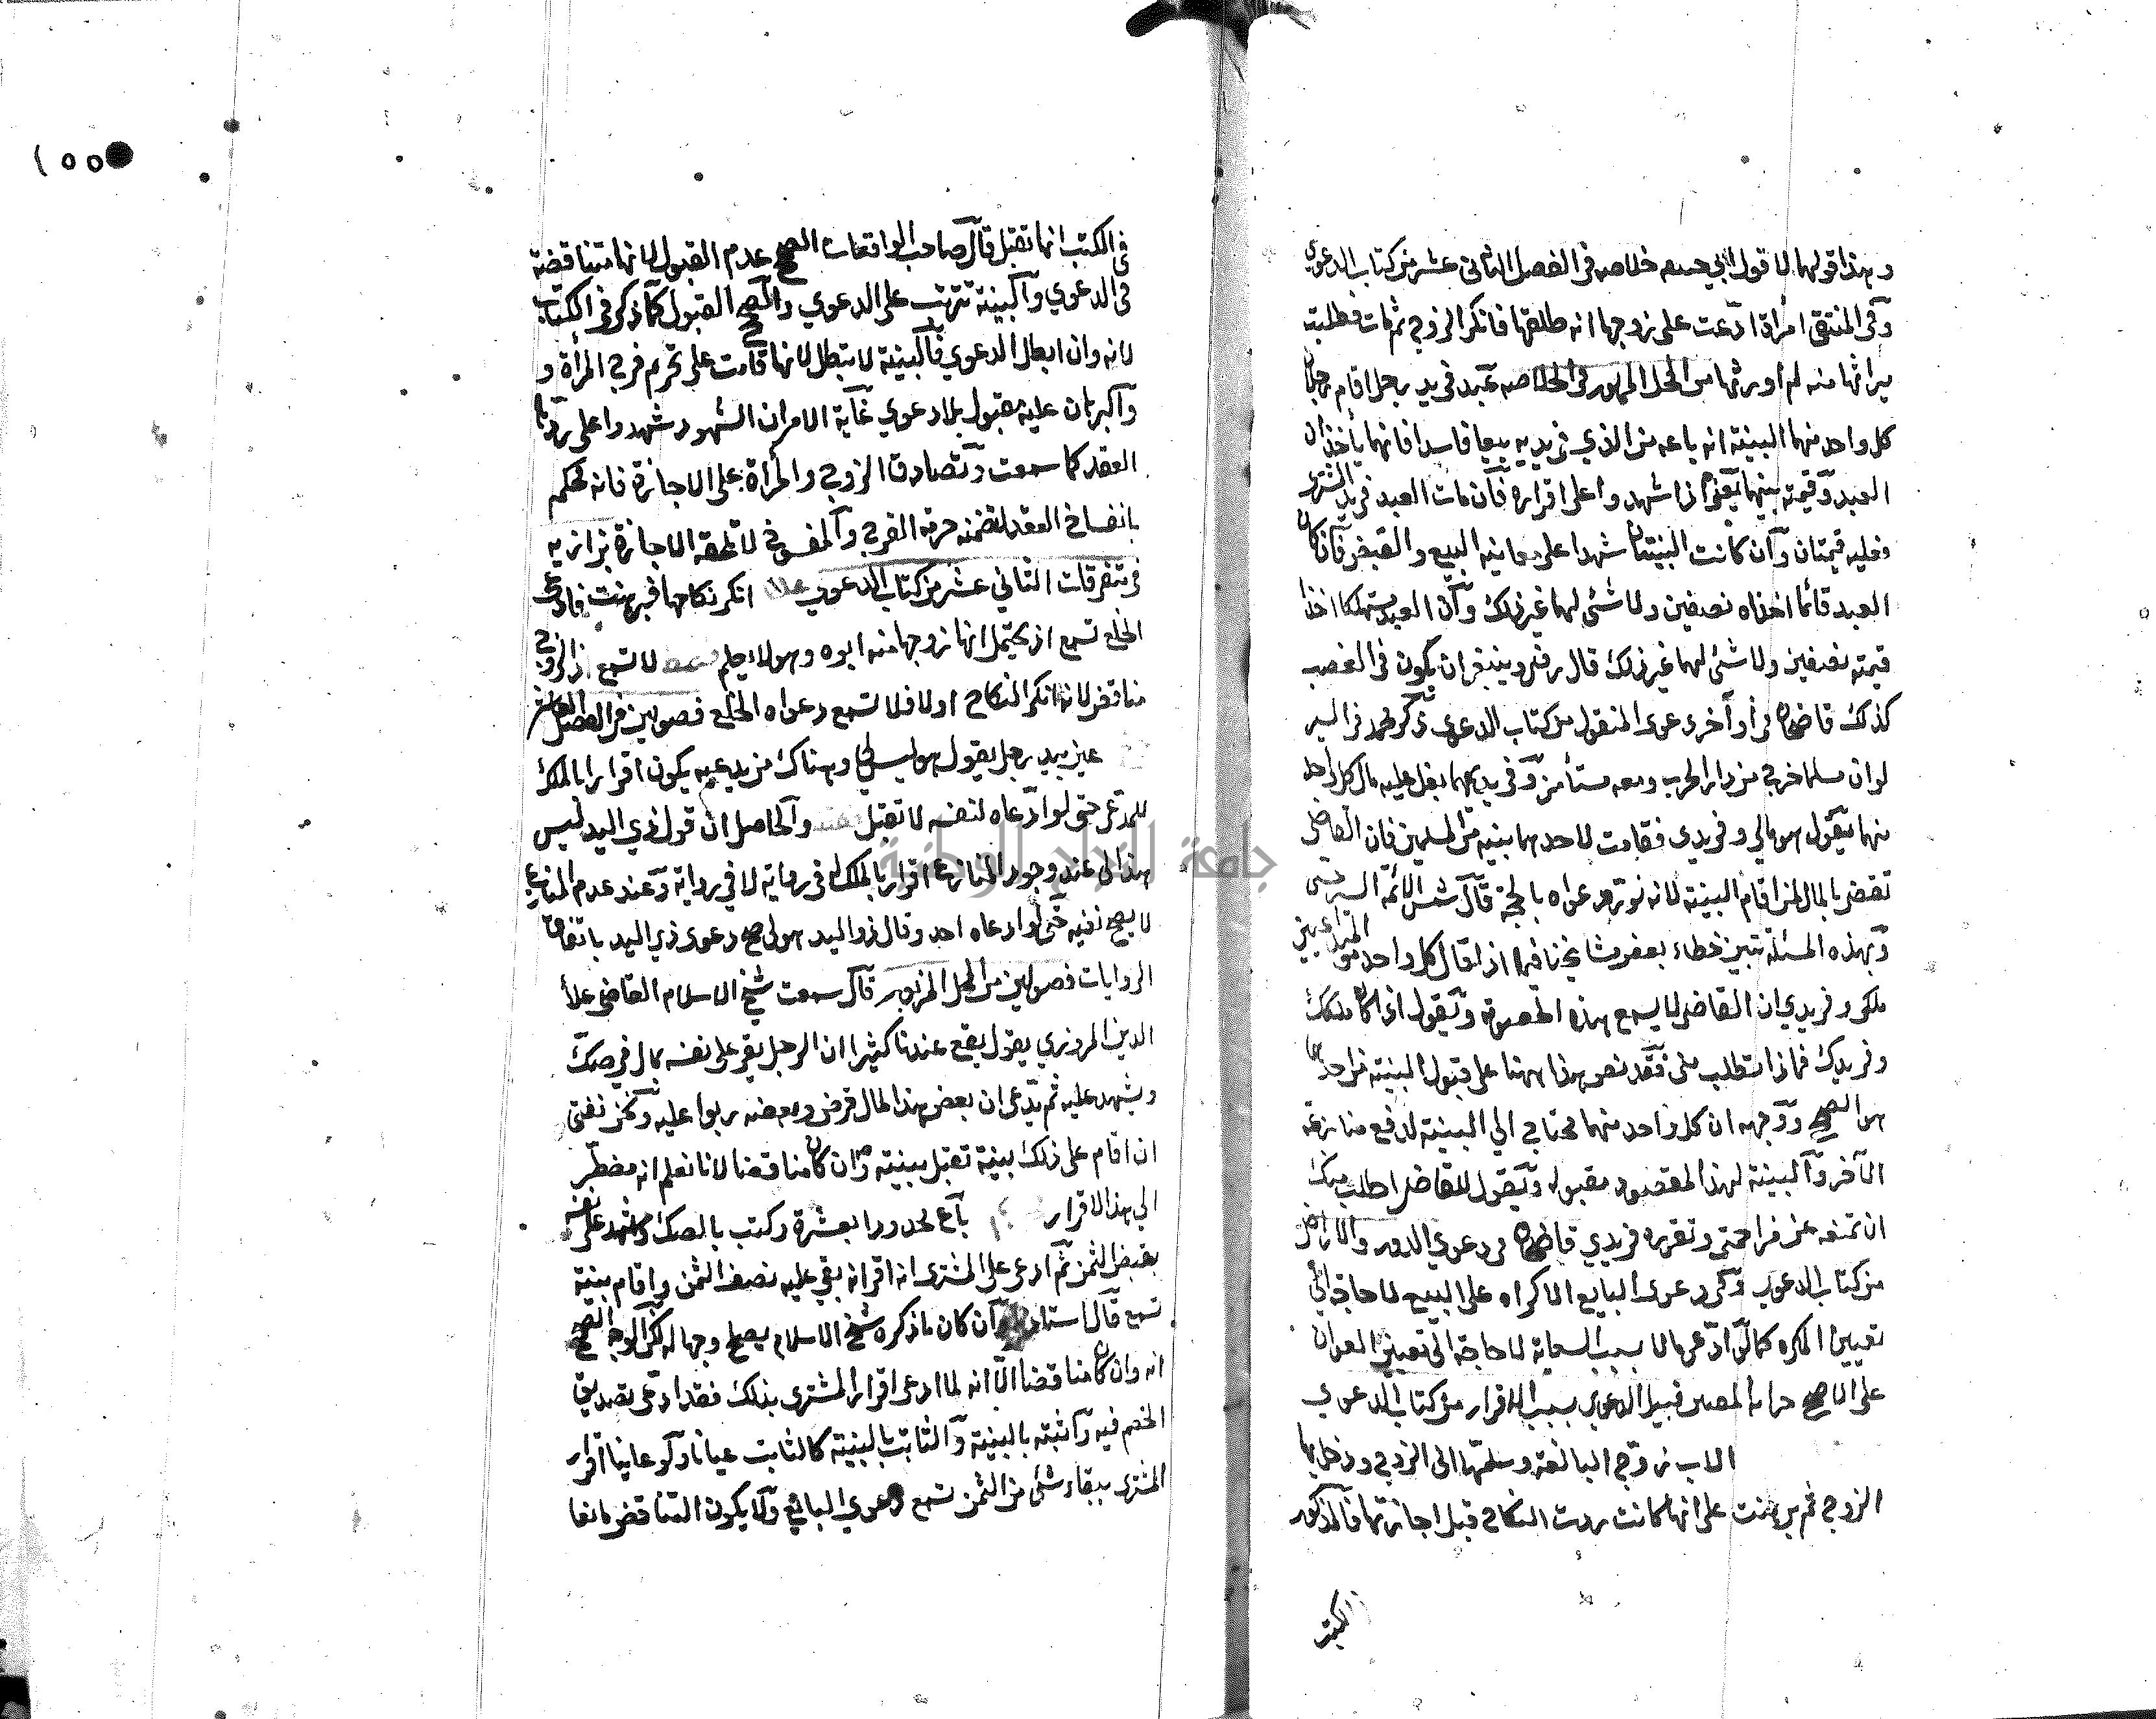 وهذا قولهما لا قول ابي حنيفة خلاصه في الفصل الثاني عشر من كتاب الدعوى
وفي المنتقى امرأة ادعت على زوجها انه طلقها فانكر الزوج ثم مات فطلبت
ميراثها منه لم اورثها من المحل المزبور في الخلاصه عبد في يد رجل اقام رجلان
كل واحد منهما البينة انه باعه من الذي في يديه بيعا فاسدا فانهما يأخذان
العبد وقيمته بينهما يعني اذا شهدوا على اقراره فان مات العبد في يد المشتري
فعليه قيمتان وان كانت البينتان شهدا على معاينة البيع والقبض فان كان
العبد قائما اخذاه نصفين ولا شئ لهما غير ذلك وان العبد مستهلكا اخذا
قيمته نصفين ولا شئ لهما غير ذلك قال زفر وينبغي ان يكون في الغصب
كذلك قاضيخان في أواخر دعوى المنقول من كتاب الدعوى ذكر محمد في السير
لو ان مسلما خرج من دار الحرب ومعه مستأمن وفي يديهما بغل عليه مال كل واحد
منهما يقول هو مالي وفي يدي فقامت لاحدهما بينة من المسلمين فان القاضي
تقضى بالمال لمن اقام البينة لانه نور دعواه بالحجة قال شمس الائمة السرخسي
وبهذه المسئلة تبين خطاء بعض مشايخنا فيما اذا قال كل واحد من المتداعيين
ملكي وفي يدي ان القاضي لا يسمع هذه الخصومة ويقول اذا كان ملكك
وفي يديك فماذا تطلب مني فقد نص هذا ههنا على قبول البينة من احدهما
هو الصحيح ووجهه ان كل واحد منهما محتاج الي البينة لدفع منازعة
الآخر والبينة لهذا المقصود مقبوله ويقول للقاضي اطلب منك
ان تمنعه عن مزاحمتي وتقرره في يدي قاضيخان في دعوى الدور والاراضي
من كتاب الدعوى ذكر دعوى البايع الاكراه على البيع لا حاجة الى
تعيين المكره كما لو ادعى مالا بسبب السعاية لا حاجة الى تعيين العوان
على الاصح خزانة المفتين قبيل الدعوى بسبب الاقرار من كتاب الدعوى
الاب زوج البالغة وسلمها الى الزوج ودخل بها
الزوج ثم برهنت على انها كانت ردت النكاح قبل اجازتها فالمذكور
الكتب
١٥٥
في الكتب انها تقبل قال صاحب الواقعات الصحيح عدم القبول لانها متناقضة
في الدعوى والبينة تترتب على الدعوى والصحيح القبول كما ذكر في الكتاب
لانه وان ابطل الدعوى فالبينة لا تبطل لانها قامت على تحريم فرج المرأة و
والبرهان عليه مقبول بلا دعوى غاية الامر ان الشهود شهدوا على ردها
العقد كما سمعت وتصادق الزوج والمرأة على الاجازة فانه نحكم
بانفساخ العقد لتضمنه حرمة الفرج والمفسوخ لا تلحقه الاجازة بزازيه
في متفرقات الثاني عشر من كتاب الدعوى انكر نكاحها فبرهنت فادعى
الخلع تسمع اذ يحتمل انها زوجها منه ابوه وهو لا يعلم لا تسمع اذ الزوج
مناقض لانه انكر النكاح اولا فلا تسمع دعواه الخلع فصولين في الفصل العاشر
عين بيد رجل يقول هو ليس لي وهناك من يدعيه يكون اقرارا بالملك
للمدعي حتى لو ادعاه لنفسه لا تقبل والحاصل ان قول ذي اليد ليس
هذا لي عند وجود المنازع اقرار بالملك في رواية لا في رواية وعند عدم المنازع
لا يصح نفيه حتى لو ادعاه احد وقال ذو اليد هو لي صح دعوى ذي اليد باتفاق
الروايات فصولين من المحل المزبور قال سمعت شيخ الاسلام القاضي علأ
الدين المروزي يقول يقع عندنا كثيرا ان الرجل يقر على نفسه بمال في صك
ويشهد عليه ثم يدعى ان بعض هذا المال قرض وبعضه ربوا عليه ونحن نفتى
ان اقام على ذلك بينة تقبل بينته وان كان مناقضا لانا نعلم انه مضطر
الي هذا الاقرار باع محدودا بعشرة وكتب بالصك واشهد على نفسه
بقبض الثمن ثم ادعى على المشترى انه اقر انه بقي عليه نصف الثمن واقام بينة
تسمع قال استاذنا وان كان ما ذكره شيخ الاسلام يصلح وجها له لكن الوجه الصحيح
انه وان كان مناقضا الا انه لما ادعى اقرار المشترى بذلك فقد ادعى تصديق
الخصم فيه واثبته بالبينة والثابت بالبينة كالثابت عيانا ولو عاينا اقرار
المشترى ببقاء شئ من الثمن تسمع دعوى البائع ولا يكون التناقض مانعا
جامعة النجاح الوطنية